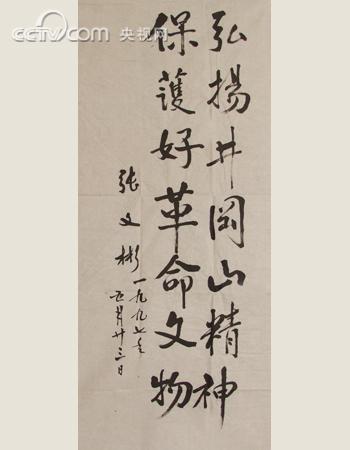 CCTV.com 央视网
弘揚井岡山精神
保護好革命文物
張文彬
一九九七年
五月廿三日